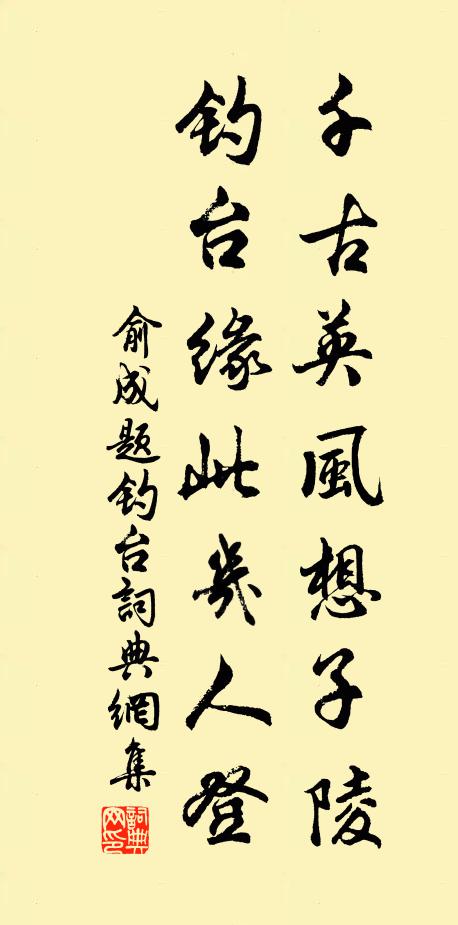 千古英風想子陵
釣台緣此幾人登
俞成題釣台詞典網集
詞典網印